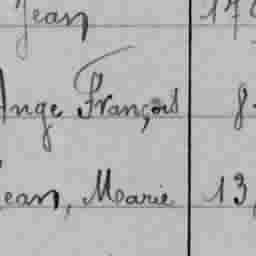 Jean
Ange François
Jean, Marie 13,